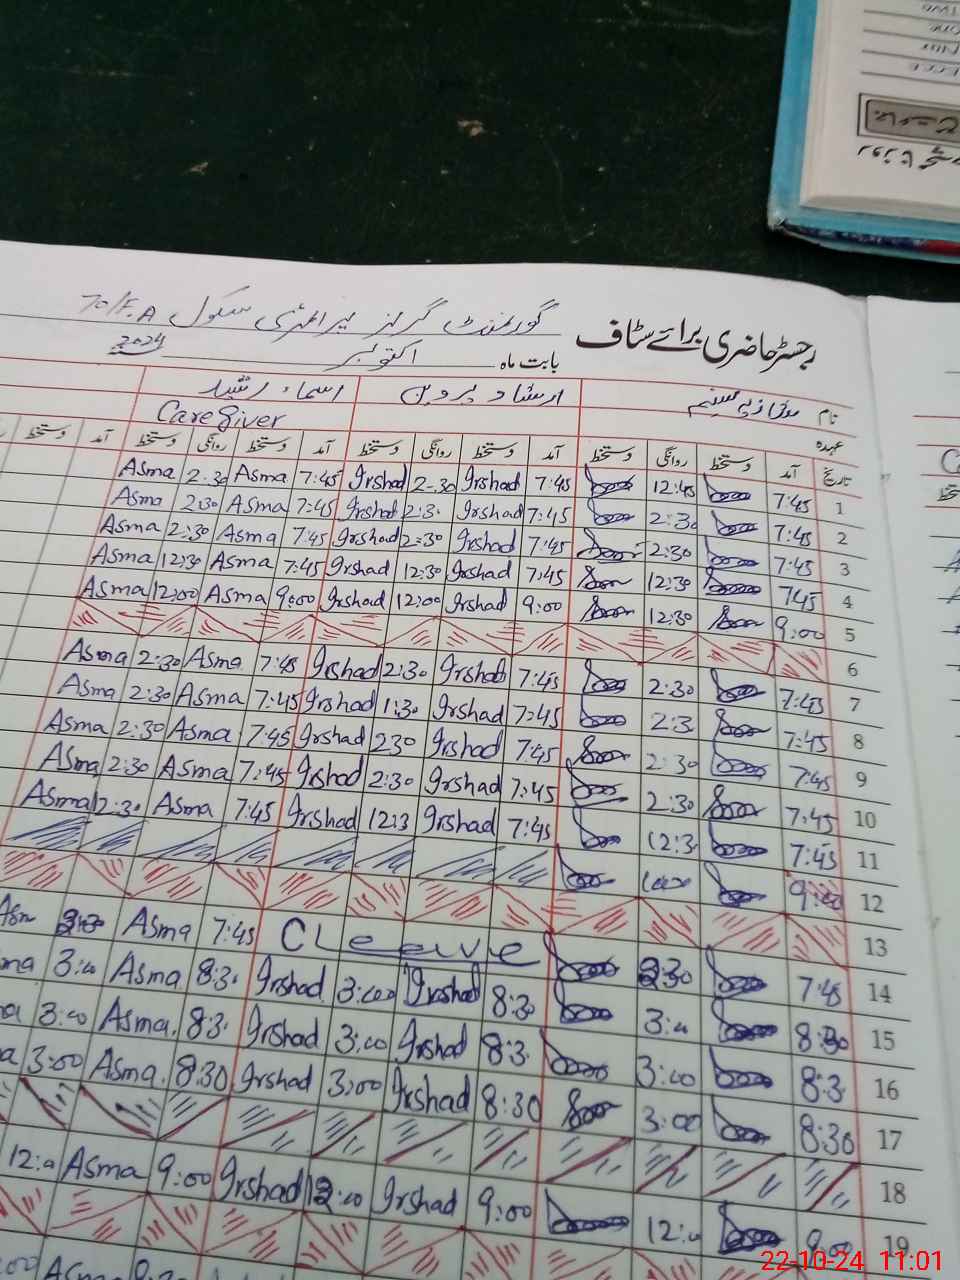 رجسٹر حاضری برائے سٹاف گورنمنٹ گرلز پرائمری سکول 70/F.A
بابت ماہ اکتوبر 2024
نام ارشاد پروین اسماء رشید
عہدہ Care Giver
تاریخ آمد دستخط روانگی دستخط آمد دستخط روانگی دستخط آمد دستخط روانگی دستخط آمد دستخط
1 7:45 12:45 7:45 Irshad 2-30 Irshad 7:45 Asma 2.30 Asma
2 7:45 2:30 7:45 Irshad 2:3. Irshad 7:45 Asma 2:30 Asma
3 7:45 2:30 7:45 Irshad 2:30 Irshad 7:45 Asma 2:30 Asma
4 7:45 12:30 7:45 Irshad 12:30 Irshad 7:45 Asma 12:30 Asma
5 9:00 12:30 9:00 Irshad 12:00 Irshad 9:00 Asma 12:00 Asma
6
7 7:45 2:30 7:45 Irshad 2:30 Irshad 7:45 Asma 2:30 Asma
8 7:45 2:3 7:45 Irshad 1:30 Irshad 7:45 Asma 2:30 Asma
9 7:45 2:30 7:45 Irshad 230 Irshad 7:45 Asma 2:30 Asma
10 7:45 2:30 7:45 Irshad 2:30 Irshad 7:45 Asma 2:30 Asma
11 7:45 12:3 7:45 Irshad 12:3 Irshad 7:45 Asma 2:30 Asma
12 9:00
13
14 7:45 2:30 C Leave 7:45 Asma 2:30 Asm
15 8:30 3:0 8:30 Irshad 3:00 Irshad 8:3. Asma 3:0 ma
16 8:3 3:00 8:3 Irshad 3:00 Irshad 8:3. Asma. 3:00 a
17 8:30 3:00 8:30 Irshad 3:00 Irshad 8:30 Asma. 3:00 a
18
19 9:00 12:0 9:00 Irshad 12:00 Irshad 9:00 Asma 12:0
Asma
22-10-24 11:01